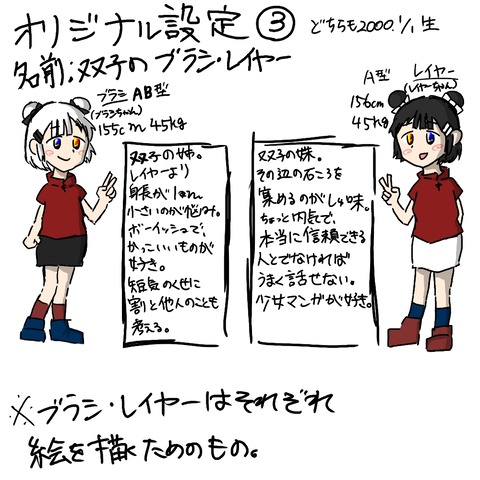 オリジナル設定③
どちらも2000.1/1生
名前;双子のブラシ・レイヤー
ブラシ AB型
(ブラシちゃん)
155cm 45kg
双子の姉。
レイヤーより
身長が1cm
小さいのが悩み。
ボーイッシュで、
かっこいいものが
好き。
短気のくせに
割と他人のことも
考える。
A型 レイヤー
(レイヤーちゃん)
156cm
45kg
双子の妹。
その辺の石ころを
集めるのがしゅ味。
ちょっと内気で、
本当に信頼できる
人とでなければ
うまく話せない。
少女マンガが好き。
※ブラシ・レイヤーはそれぞれ
絵を描くためのもの。